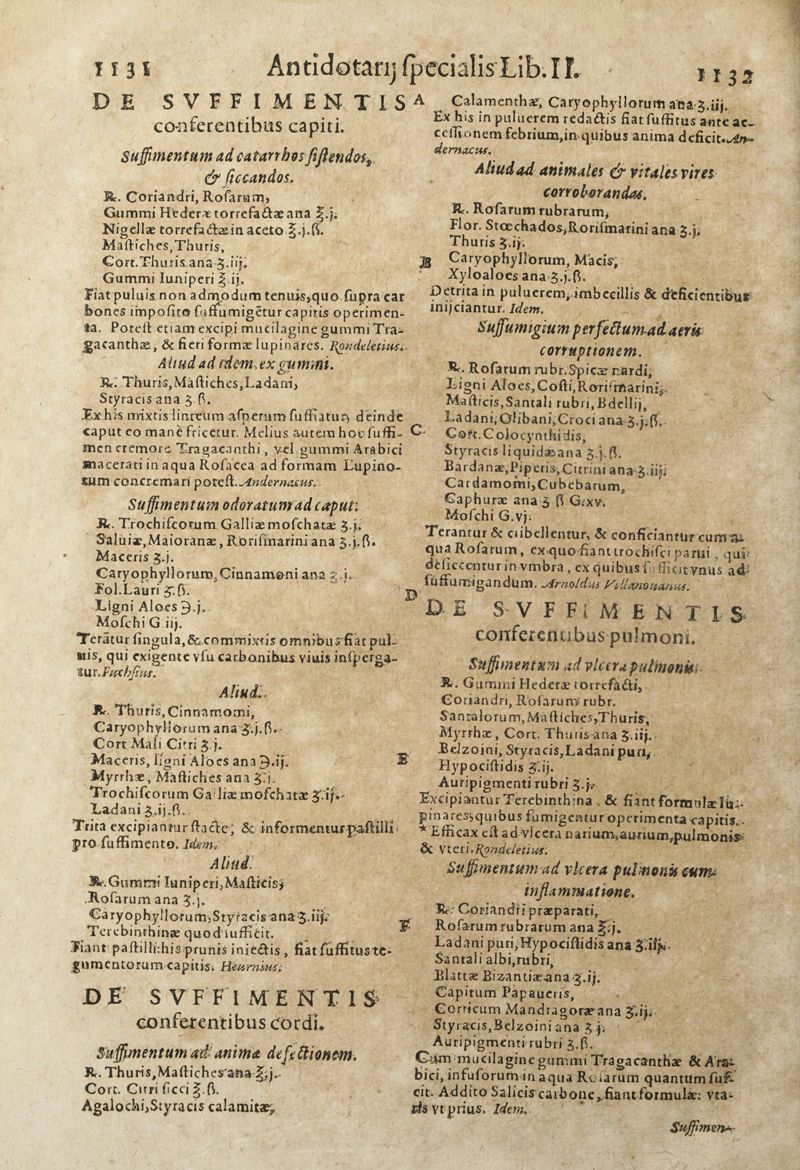 1131
Antidotarij ſpecialis Lib. II.
1132
DE SVFFIMENTIS
conferentibus capiti.
Suffimentum ad catarrhos ſiſtendos,
& ſiccandos.
℞. Coriandri, Roſarum,
Gummi Hederæ torrefactæ ana ℥.j.
Nigellæ torrefactæ in aceto ℥.j.ß.
Maſtiches, Thuris,
Cort. Thuris ana ʒ.iij.
Gummi Iuniperi ℥.ij.
Fiat puluis non admodum tenuis, quo ſupra car
bones impoſito ſuffumigētur capitis operimen-
ta. Poteſt etiam excipi mucilagine gummi Tra-
gacanthæ, & fieri formæ lupinares. Rondeletius.
Aliud ad idem, ex gummi.
℞. Thuris, Maſtiches, Ladani,
Styracis ana ʒ.ß.
Ex his mixtis linteum aſperum ſuffiatur, deinde
caput eo mane fricetur. Melius autem hoc ſuffi-
men cremore Tragacanthi, vel gummi Arabici
macerati in aqua Roſacea ad formam Lupino-
rum concremari poteſt. Andernacus.
Suffimentum odoratum ad caput.
℞. Trochiſcorum Galliæ moſchatæ ʒ.j.
Saluiæ, Maioranæ, Roriſmarini ana ʒ.j.ß.
Maceris ʒ.j.
Caryophyllorum, Cinnamoni ana ʒ.j.
Fol. Lauri ʒ.ß.
Ligni Aloes ℈.j.
Moſchi G iij.
Terātur ſingula, & commixtis omnibus fiat pul-
uis, qui exigente vſu carbonibus viuis inſperga-
tur. Fuchſius.
Aliud.
℞. Thuris, Cinnamomi,
Caryophyllorum ana ʒ.j.ß.
Cort Mali Citri ʒ j.
Maceris, ligni Aloes ana ℈.ij.
Myrrhæ, Maſtiches ana ʒ.j.
Trochiſcorum Galliæ moſchatæ ʒ.ij.
Ladani ʒ.ij.ß.
Trita excipiantur ſtacte, & informentur paſtilli
pro ſuffimento. Idem.
Aliud.
℞. Gummi Iuniperi, Maſticis,
Roſarum ana ʒ.j.
Caryophyllorum, Styracis ana ʒ.iij.
Terebinthinæ quod ſufficit.
Fiant paſtilli: his prunis iniectis, fiat ſuffitus te-
gumentorum capitis. Heurnius.
DE SVFFIMENTIS
conferentibus cordi.
Suffimentum ad animæ defectionem.
℞. Thuris, Maſtiches ana ℥.j.
Cort. Citri ſicci ℥.ß.
Agalochi, Styracis calamitæ,
A
Calamenthæ, Caryophyllorum ana ʒ.iij.
Ex his in puluerem redactis fiat ſuffitus ante ac-
ceſſionem febrium, in quibus anima deficit. An-
dernacus.
Aliud ad animales & vitales vires
corroborandas.
℞. Roſarum rubrarum,
Flor. Stœchados, Roriſmarini ana ʒ.j.
Thuris ʒ.ij.
B
Caryophyllorum, Macis,
Xyloaloes ana ʒ.j.ß.
Detrita in puluerem, imbecillis & deficientibus
inijciantur. Idem.
Suffumigium perfectum ad aeris
corruptionem.
℞. Roſarum rubr. Spicæ nardi,
Ligni Aloes, Coſti, Roriſmarini,
Maſticis, Santali rubri, Bdellij,
Ladani, Olibani, Croci ana ʒ.j.ß.
C
Cort. Colocynthidis,
Styracis liquidæ ana ʒ.j.ß.
Bardanæ, Piperis, Citrini ana ʒ.iij.
Cardamomi, Cubebarum,
Caphuræ ana ʒ ß G.xv.
Moſchi G.vj.
Terantur & cribellentur, & conficiantur cum a-
qua Roſarum, ex quo fiant trochiſci parui, qui
deſiccentur in vmbra, ex quibus ſufficit vnus ad
ſuffumigandum. Arnoldus Villanouanus.
D
DE SVFFIMENTIS
conferentibus pulmoni.
Suffimentum ad vlcera pulmonis.
℞. Gummi Hederæ torrefacti,
Coriandri, Roſarum rubr.
Santalorum, Maſtiches, Thuris,
Myrrhæ, Cort. Thuris ana ʒ.iij.
Belzoini, Styracis, Ladani puri,
E
Hypociſtidis ʒ.ij.
Auripigmenti rubri ʒ.j.
Excipiantur Terebinthina, & fiant formulæ lu-
pinares, quibus fumigentur operimenta capitis.
* Efficax eſt ad vlcera narium, aurium, pulmonis
& vteri. Rondeletius.
Suffimentum ad vlcera pulmonis cum
inflammatione.
℞. Coriandri præparati,
F
Roſarum rubrarum ana ℥.j.
Ladani puri, Hypociſtidis ana ʒ.iij.
Santali albi, rubri,
Blattæ Bizantiæ ana ʒ.ij.
Capitum Papaueris,
Corticum Mandragoræ ana ʒ.ij.
Styracis, Belzoini ana ʒ j.
Auripigmenti rubri ʒ.ß.
Cum mucilagine gummi Tragacanthæ & Ara-
bici, infuſorum in aqua Roſarum quantum ſuf-
cit. Addito Salicis carbone, fiant formulæ: vta-
ris vt prius. Idem.
Suffimen-